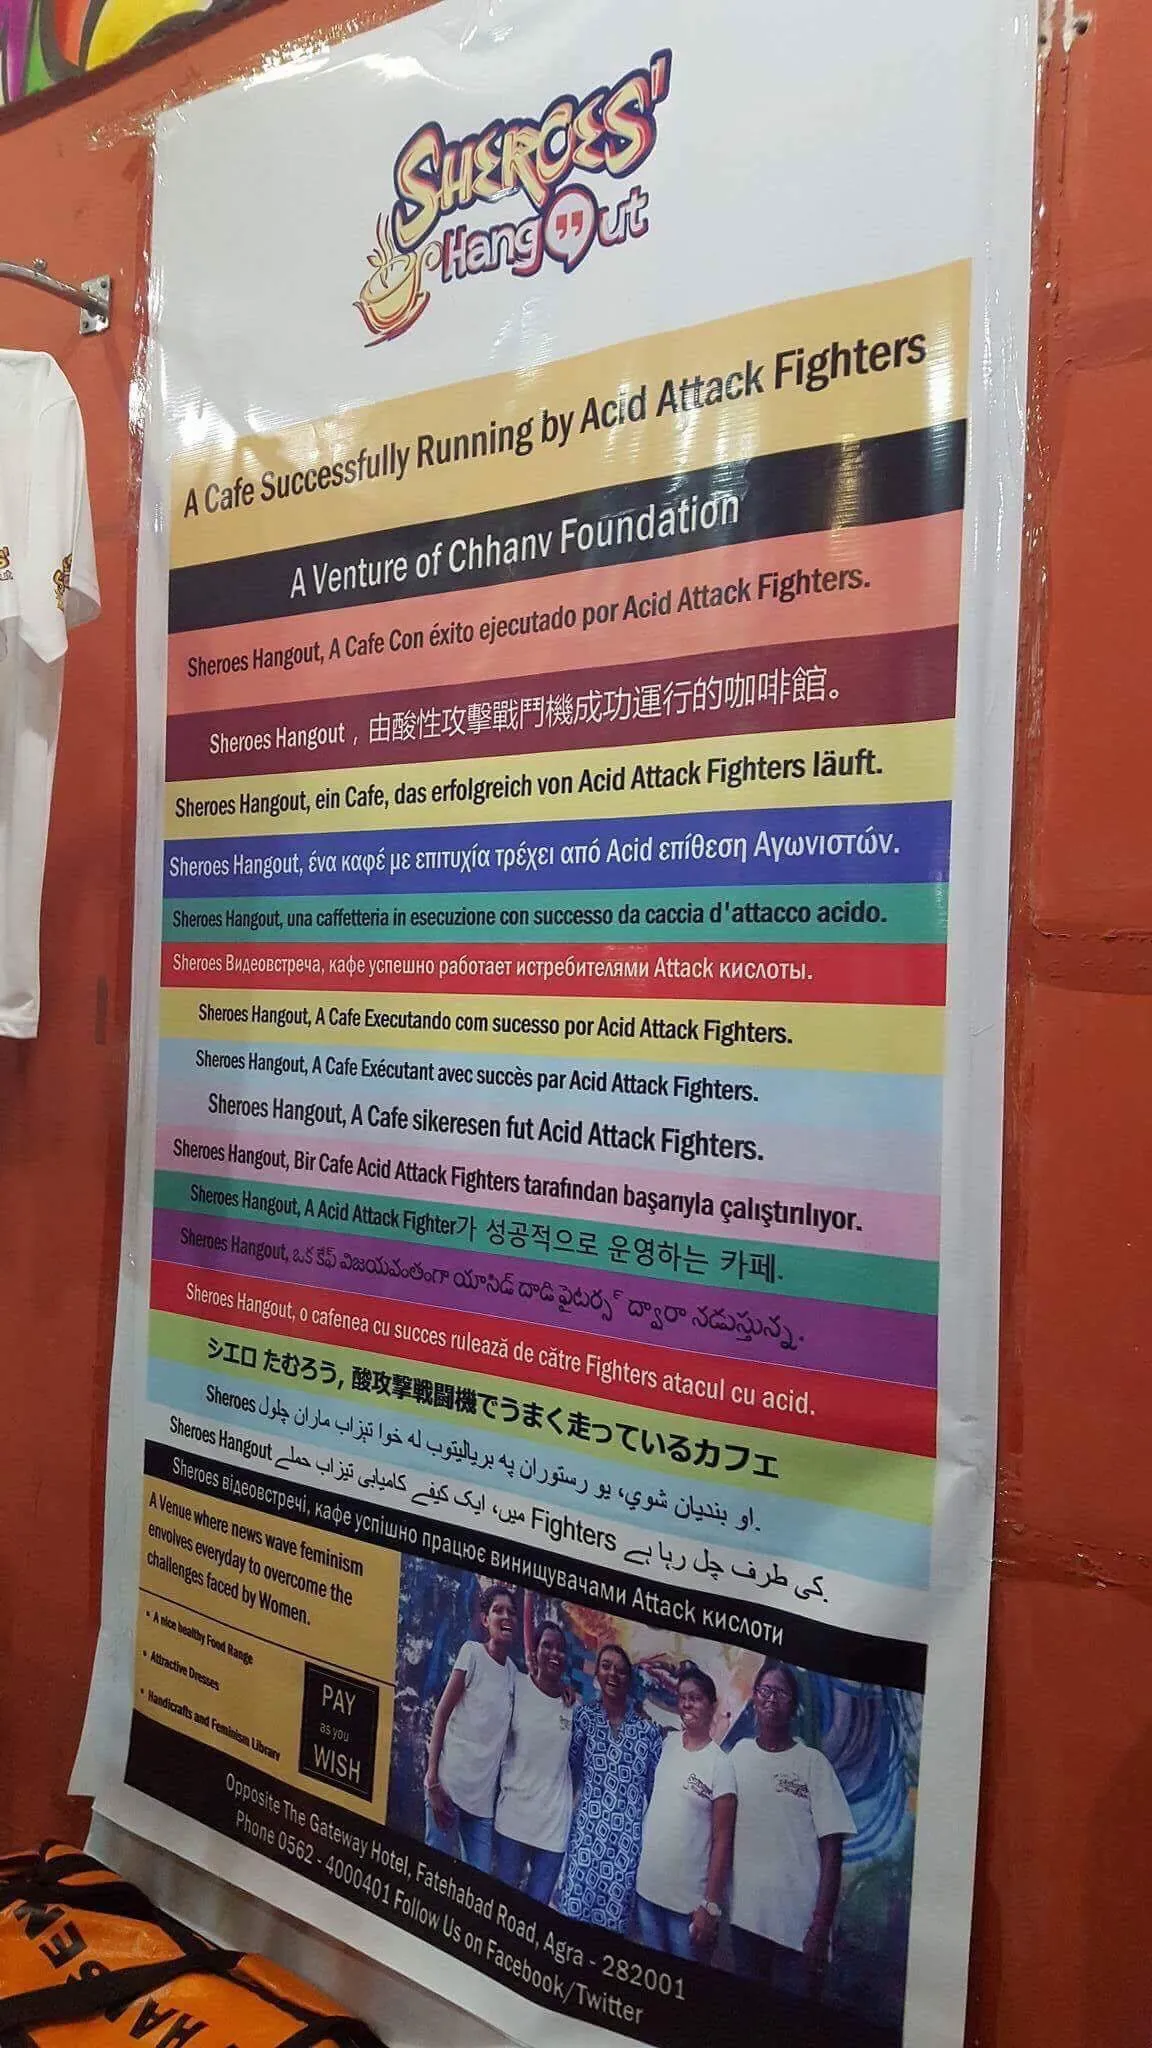 SHEROES'
HangOut
A Cafe Successfully Running by Acid Attack Fighters
A Venture of Chhanv Foundation
Sheroes Hangout, A Cafe Con éxito ejecutado por Acid Attack Fighters.
Sheroes Hangout，由酸性攻擊戰鬥機成功運行的咖啡館。
Sheroes Hangout, ein Cafe, das erfolgreich von Acid Attack Fighters läuft.
Sheroes Hangout, ένα καφέ με επιτυχία τρέχει από Acid επίθεση Αγωνιστών.
Sheroes Hangout, una caffetteria in esecuzione con successo da caccia d'attacco acido.
Sheroes Видеовстреча, кафе успешно работает истребителями Attack кислоты.
Sheroes Hangout, A Cafe Executando com sucesso por Acid Attack Fighters.
Sheroes Hangout, A Cafe Exécutant avec succès par Acid Attack Fighters.
Sheroes Hangout, A Cafe sikeresen fut Acid Attack Fighters.
Sheroes Hangout, Bir Cafe Acid Attack Fighters tarafından başarıyla çalıştırılıyor.
Sheroes Hangout, A Acid Attack Fighter가 성공적으로 운영하는 카페.
Sheroes Hangout, ఒక కేఫ్ విజయవంతంగా యాసిడ్ దాడి ఫైటర్స్ ద్వారా నడుస్తున్న.
Sheroes Hangout, o cafenea cu succes rulează de către Fighters atacul cu acid.
シエロ たむろう, 酸攻撃戦闘機でうまく走っているカフェ
Sheroes او بندیان شوي، یو رستوران په بریالیتوب له خوا تیزاب ماران چلول.
Sheroes Hangout میں، ایک کیفے کامیابی تیزاب حملے Fighters کی طرف چل رہا ہے.
Sheroes відеовстречі, кафе успішно працює винищувачами Attack кислоти
A Venue where news wave feminism
envolves everyday to overcome the
challenges faced by Women.
• A nice healthy Food Range
• Attractive Dresses
• Handicrafts and Feminism Library
PAY
as you
WISH
Opposite The Gateway Hotel, Fatehabad Road, Agra - 282001
Phone 0562 - 4000401 Follow Us on Facebook/Twitter